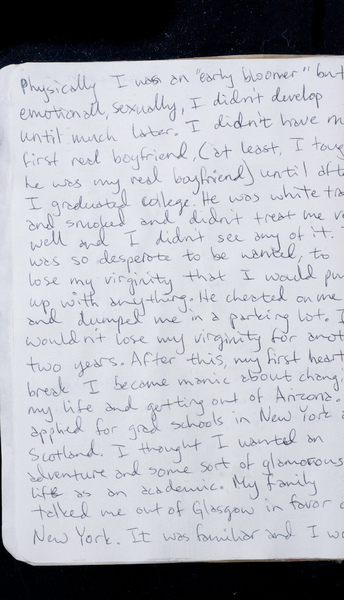 Physically I was an "early bloomer" but
emotionall, sexually, I didn't develop
until much later. I didn't have m
first real boyfriend, (at least, I toug
he was my real boyfriend) until aft
I graduated college. He was white tra
and smoked and didn't treat me v
well and I didn't see any of it. I
was so desperate to be wanted, to
lose my virginity that I would pu
up with anything. He cheated on me
and dumped me in a parking lot. I
wouldn't lose my virginity for anot
two years. After this, my first heart
break I became manic about chang
my life and getting out of Arizona.
applied for grad schools in New York a
Scotland. I thought I wanted an
adventure and some sort of glamorous
life as an academic. My family
talked me out of Glasgow in favor o
New York. It was familiar and I wa